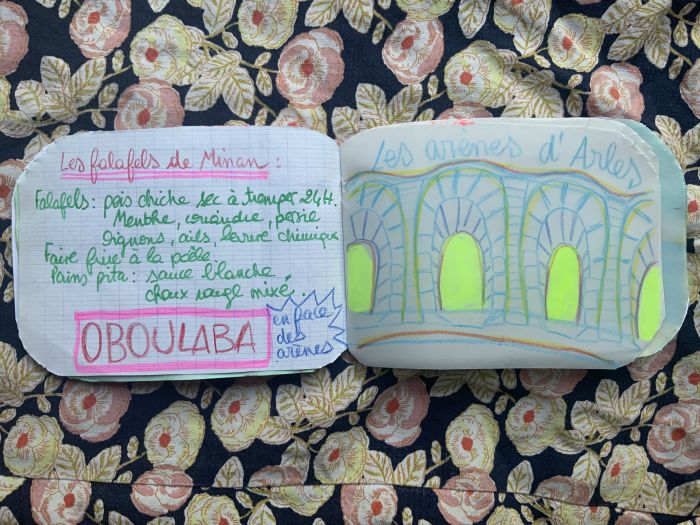 Les falafels de Minan :
Falafels : pois chiche sec à tremper 24H.
Menthe, coriandre, persie
oignons, ails, levure chimique
Faire frire à la poêle.
Pains pita : sauce blanche,
choux rouge mixé.
OBOULABA
en face
des
arènes
Les arènes d'Arles